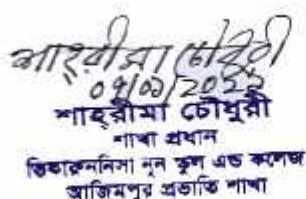 শাহ্‌রীমা চৌধুরী
০৭/০১/2022
শাহ্‌রীমা চৌধুরী
শাখা প্রধান
ভিকারুননিসা নূন স্কুল এন্ড কলেজ
আজিমপুর প্রভাতি শাখা